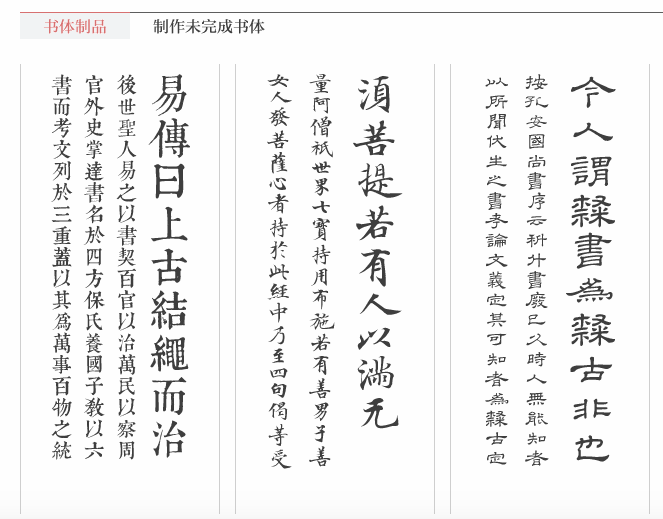 书体制品
制作未完成书体
易傳曰上古結繩而治
後世聖人易之以書契百官以治萬民以察周
官外史掌達書名於四方保氏養國子教以六
書而考文列於三重蓋以其為萬事百物之統
須菩提若有人以滿无
量阿僧祇世界七寶持用布施若有善男子善
女人發菩薩心者持於此經中乃至四句偈等受
今人謂隸書為隸古非也
按孔安國尚書序云科斗書廢已久時人無能知者
以所聞伏生之書考論文義定其可知者為隸古定